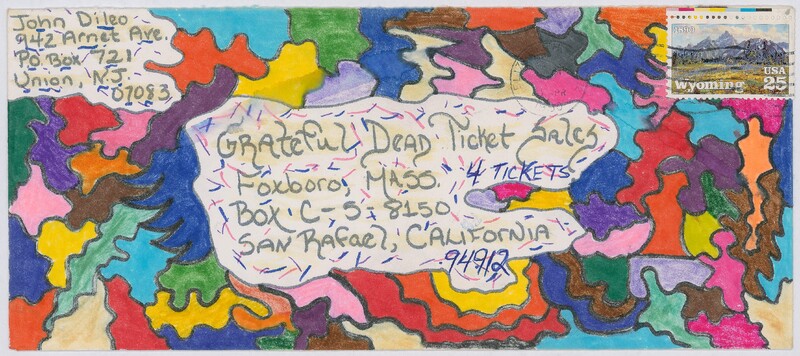 John Dileo
942 Arnet Ave.
P.O. Box 721
Union, N.J.
07083
1890
Wyoming
USA
25
Grateful Dead Ticket Sales
Foxboro, MASS.
4 TICKETS
Box C-S-8150
SAN Rafael, CALIFORNIA
94912